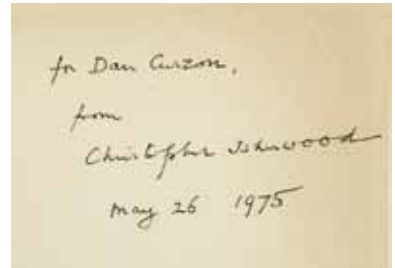 for Dan Curzon,
from
Christopher Isherwood
May 26 1975